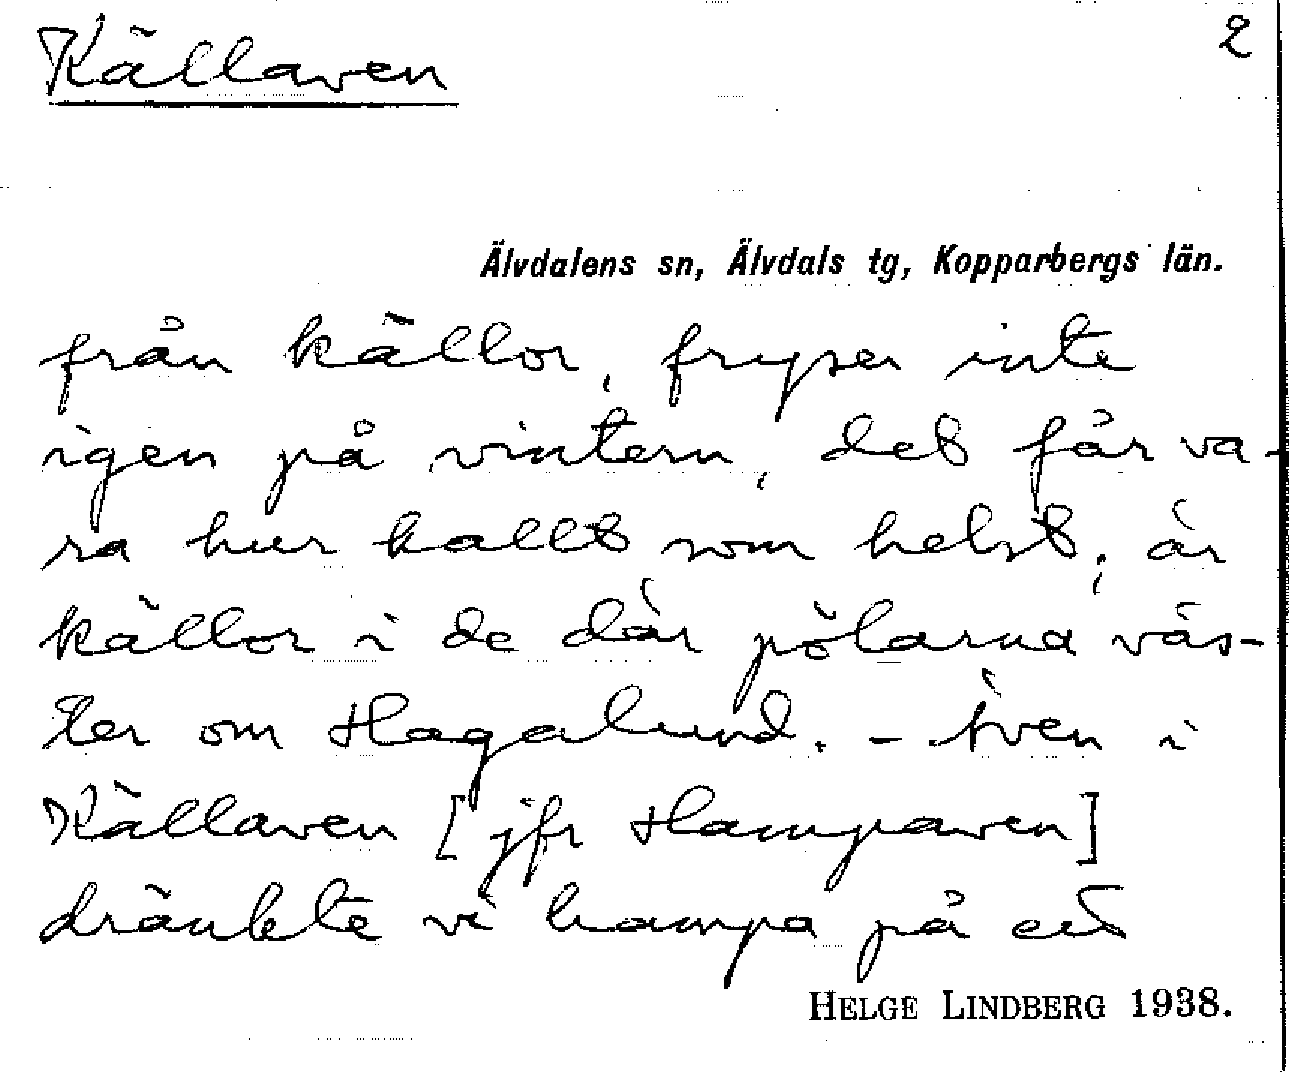 Källaven 2
Älvdalens sn, Älvdals tg, Kopparbergs län.
från källor, fryser inte
igen på vintern, det får va-
ra hur kallt som helst; är
källor i de där pölarna väs-
ter om Hagalund. - Även i
Källaven [jfr Hampaven]
dränkte vi hampa på ett
HELGE LINDBERG 1938.